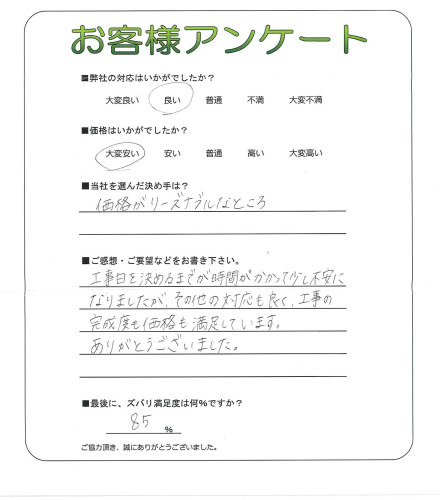 お客様アンケート
■弊社の対応はいかがでしたか？
大変良い 良い 普通 不満 大変不満
■価格はいかがでしたか？
大変安い 安い 普通 高い 大変高い
■当社を選んだ決め手は？
価格がリーズナブルなところ
■ご感想・ご要望などをお書き下さい。
工事日を決めるまでが時間がかかって少し不安に
なりましたが、その他の対応も良く、工事の
完成度も価格も満足しています。
ありがとうございました。
■最後に、ズバリ満足度は何%ですか？
85 %
ご協力頂き、誠にありがとうございました。